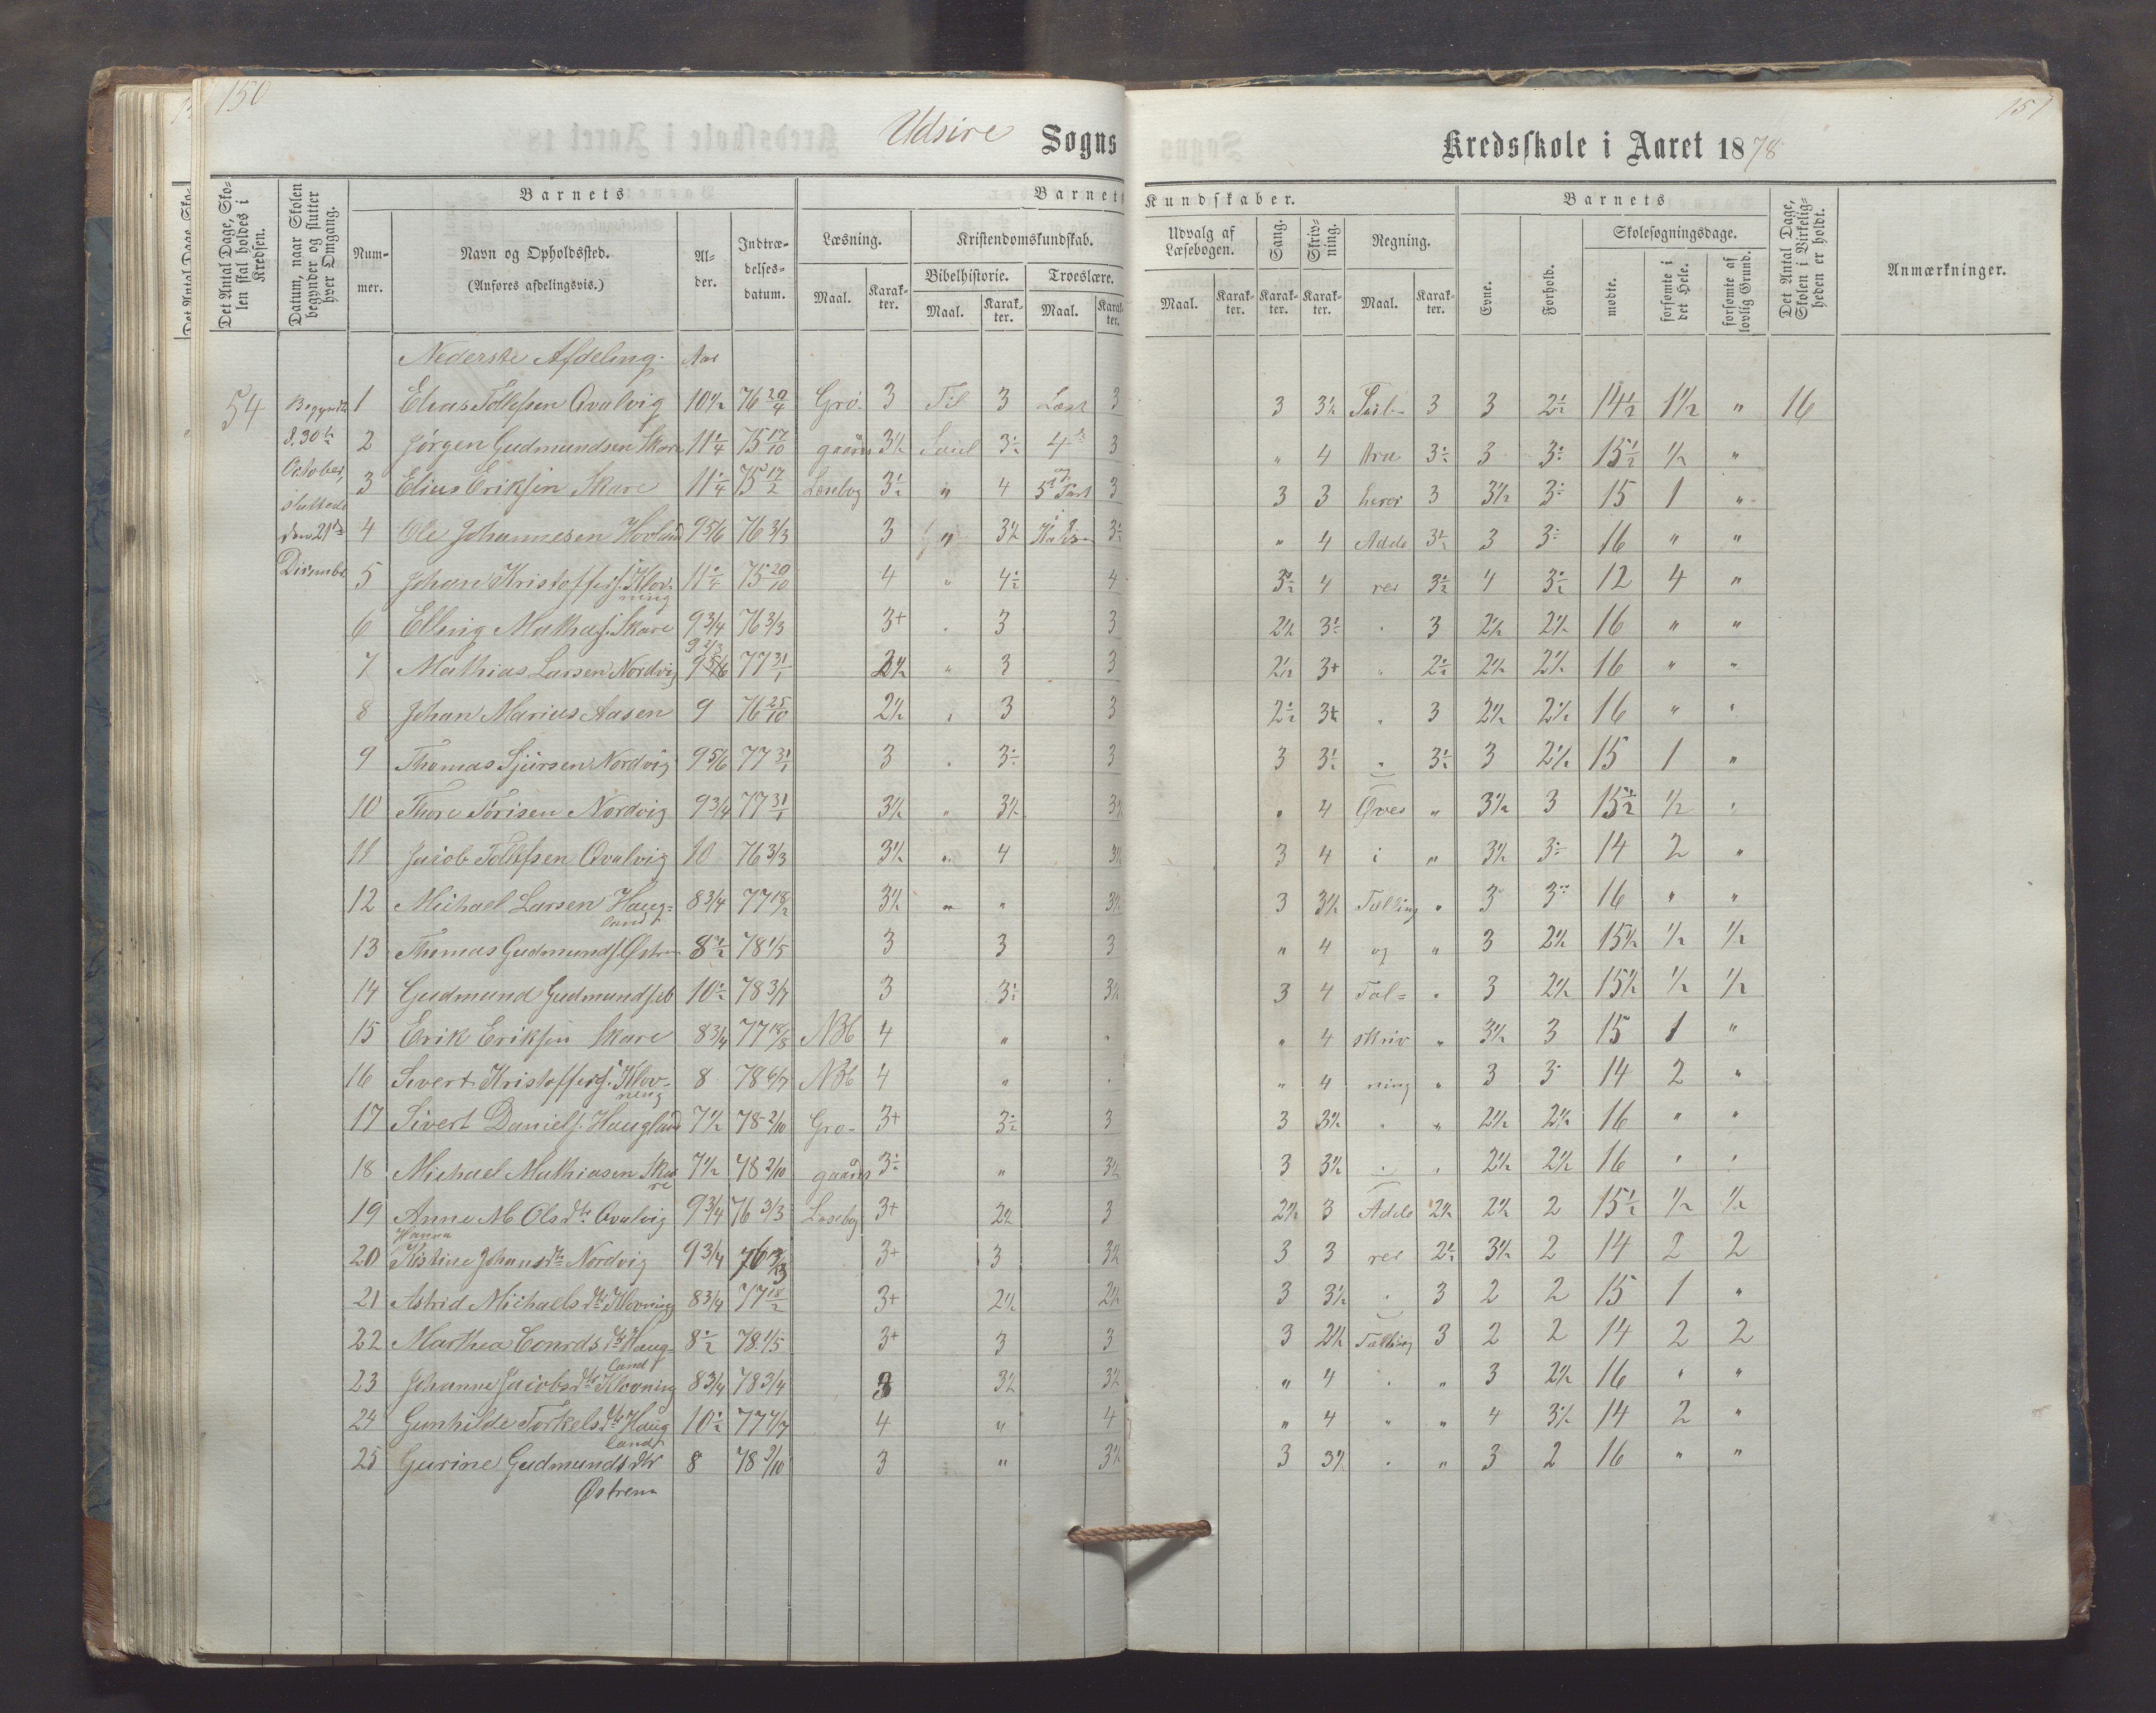 150
151
Udsire Sogns Kredsskole i Aaret 1878
Det Antal Dage, Skolen skal holdes i Kredsen.
Datum, naar Skolen begynder og slutter hver Omgang.
Barnets
Nummer.
Navn og Opholdssted.
(Anføres afdelingsvis.)
Alder.
Indtrædelsesdatum.
Barnets Kundskaber.
Læsning.
Kristendomskundskab.
Bibelhistorie.
Troeslære.
Maal.
Karakter.
Maal.
Karakter.
Maal.
Karakter.
Udvalg af Læsebogen.
Sang.
Skrivning.
Regning.
Maal.
Karakter.
Karakter.
Karakter.
Maal.
Karakter.
Barnets
Evne.
Forhold.
Skolesøgningsdage.
mødte.
forsømte i det Hele.
forsømte af lovlig Grund.
Det Antal Dage, Skolen i Virkeligheden er holdt.
Anmærkninger.
Nederste Afdeling. Aar
54 Begyndte d. 30te October, sluttede den 21de December
1 Elias Tollefsen Qvalvig 10½ 76 20/4 Gro- 3 Til 3 Læst 3 3 3½ Sub- 3 3 2½ 14½ 1½ " 16
2 Jørgen Gudmundsen Skare 11¼ 75 17/10 gaards 3½ Saul 3½ 4de 3 " 4 tra 3½ 3 3½ 15½ ½ "
3 Elius Eriksen Skare 11¼ 75 17/2 Læsebog 3½ " 4 5te Part 3 3 3 herer 3 3½ 3½ 15 1 "
4 Ole Johannesen Hovland 9 5/6 76 3/3 3 " 3½ 3½ " 4 Adde 3½ 3 3½ 16 " "
5 Johan Kristoffers. Klovning 11¼ 75 20/10 4 " 4½ 4 3½ 4 rer 3½ 4 3½ 12 4 "
6 Elling Mathias. Skare 9¾ 76 3/3 3+ " 3 3 2½ 3½ " 3 2½ 2½ 16 " "
7 Mathias Larsen Nordvig 9 5/6 77 31/1 2½ " 3 3 2½ 3+ " 2½ 2½ 2½ 16 " "
8 Johan Marius Aasen 9 76 25/10 2½ " 3 3 2½ 3+ " 3 2½ 2½ 16 " "
9 Thomas Sjursen Nordvig 9 5/6 77 31/1 3 " 3½ 3 3 3½ " 3½ 3 2½ 15 1 "
10 Thore Torisen Nordvig 9¾ 77 31/1 3½ " 3½ 3½ " 4 Øves " 3½ 3 15½ ½ "
11 Jacob Tollefsen Qvalvig 10 76 3/3 3½ " 4 3½ 3 4 i " 3½ 3½ 14 2 "
12 Michael Larsen Haugland 8¾ 77 18/2 3½ " " 3½ 3 3½ Tælling " 3 3½ 16 " "
13 Thomas Gudmunds. Østrem 8½ 78 1/5 3 3 3 " 4 og " 3 2½ 15½ ½ ½
14 Gudmund Gudmunds. 10½ 78 3/7 3 3½ 3½ 3 4 Tal= " 3 2½ 15½ ½ ½
15 Erik Eriksen Skare 8¾ 77 18/8 Abc 4 " " " 4 skriv " 3½ 3 15 1 "
16 Sivert Kristoffers. Klovning 8 78 6/7 Abc 4 " " " 4 ning " 3 3 14 2 "
17 Sivert Daniels. Haugland 7½ 78 2/10 Gro- 3+ 3½ 3 3 3½ " " 2½ 2½ 16 " "
18 Michael Mathiasen Skare 7½ 78 2/10 gaards 3½ " 3½ 3 3½ " " 2½ 2½ 16 " "
19 Anne M. Olsdtr Qvalvig 9¾ 76 3/3 Læsebog 3+ 2½ 3 2½ 3 Adde 2½ 2½ 2 15½ ½ ½
20 Hanna Kistine Johansdtr Nordvig 9¾ 76 3/3 3+ 3 3½ 3 3 rer 2½ 3½ 2 14 2 2
21 Astrid Michaelsdtr Klovning 8¾ 77 18/2 3+ 2½ 2½ 3 3½ " 3 2 2 15 1 "
22 Marthea Conrdsdtr Haugland 8½ 78 1/5 3+ 3 3 3 2½ Tælling 3 2 2 14 2 2
23 Johanne Jacobsdtr Klovning 8¾ 78 3/4 3 3½ 3½ " 4 " " 3 2½ 16 " "
24 Gunhilde Torkelsdtr Haugland 10½ 77 4/7 4 " 4 " 4 " " 4 3½ 14 2 "
25 Gurine Gudmundsdtr Østrem 8 78 2/10 3 " 3½ 3 3½ " " 3 2 16 " "